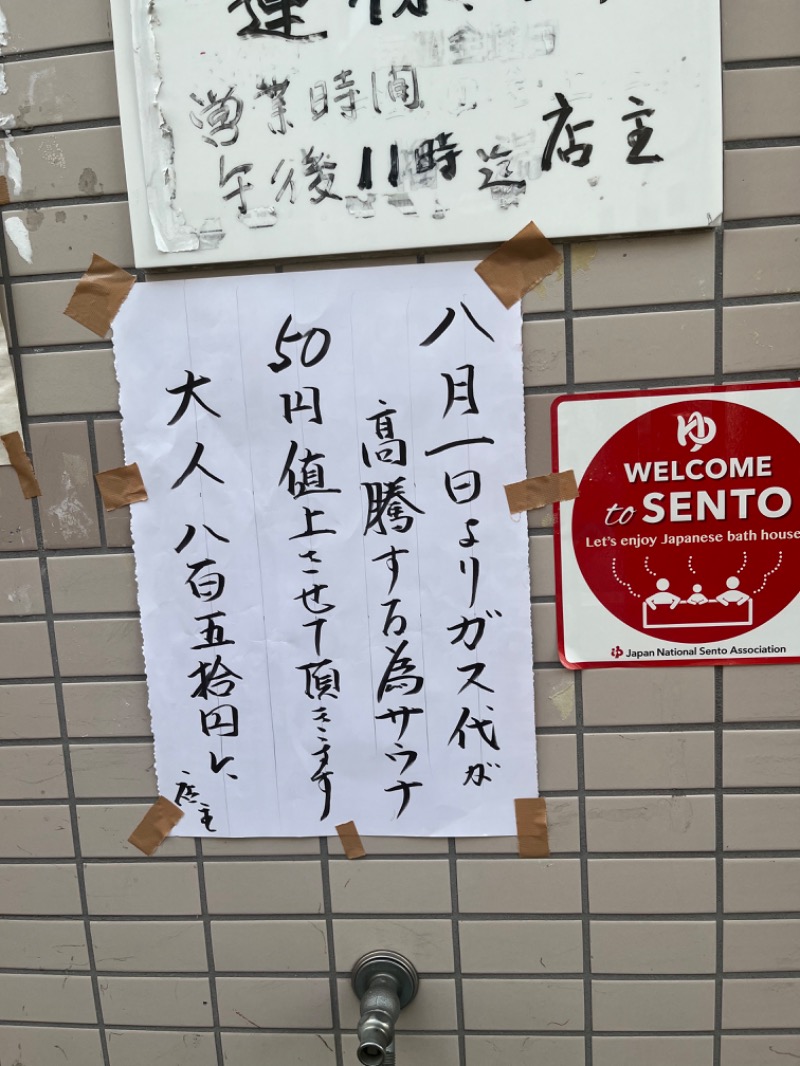 営業時間
午後11時迄 店主
八月一日よりガス代が
高騰する為サウナ
50円値上させて頂きます
大人 八百五拾円に
店主
ゆ
WELCOME
to SENTO
Let's enjoy Japanese bath house
ゆ Japan National Sento Association